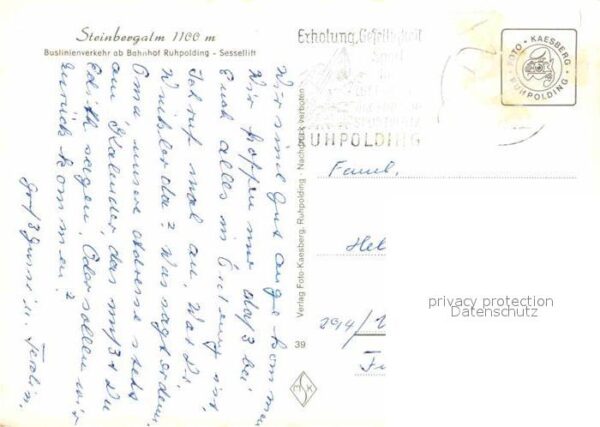 Steinbergalm 1100 m
Buslinienverkehr ab Bahnhof Ruhpolding - Sessellift
Erholung, Geselligkeit
Sport
RUHPOLDING
FOTO - KAESBERG
RUHPOLDING
Wir sind gut angekommen
Wir hoffen nur daß bei
Euch alles in Ordnung ist,
Ich ruf mal an. War Dr.
da? Was sagt er denn.
Oma, unsere Adresse steht
am Kalender, das mußt Du
Edith sagen. Oder sollen wir
zurück kommen?
u.
Verlag Foto-Kaesberg, Ruhpolding - Nachdruck verboten
39
Faml.
Hel
294/
privacy protection
Datenschutz